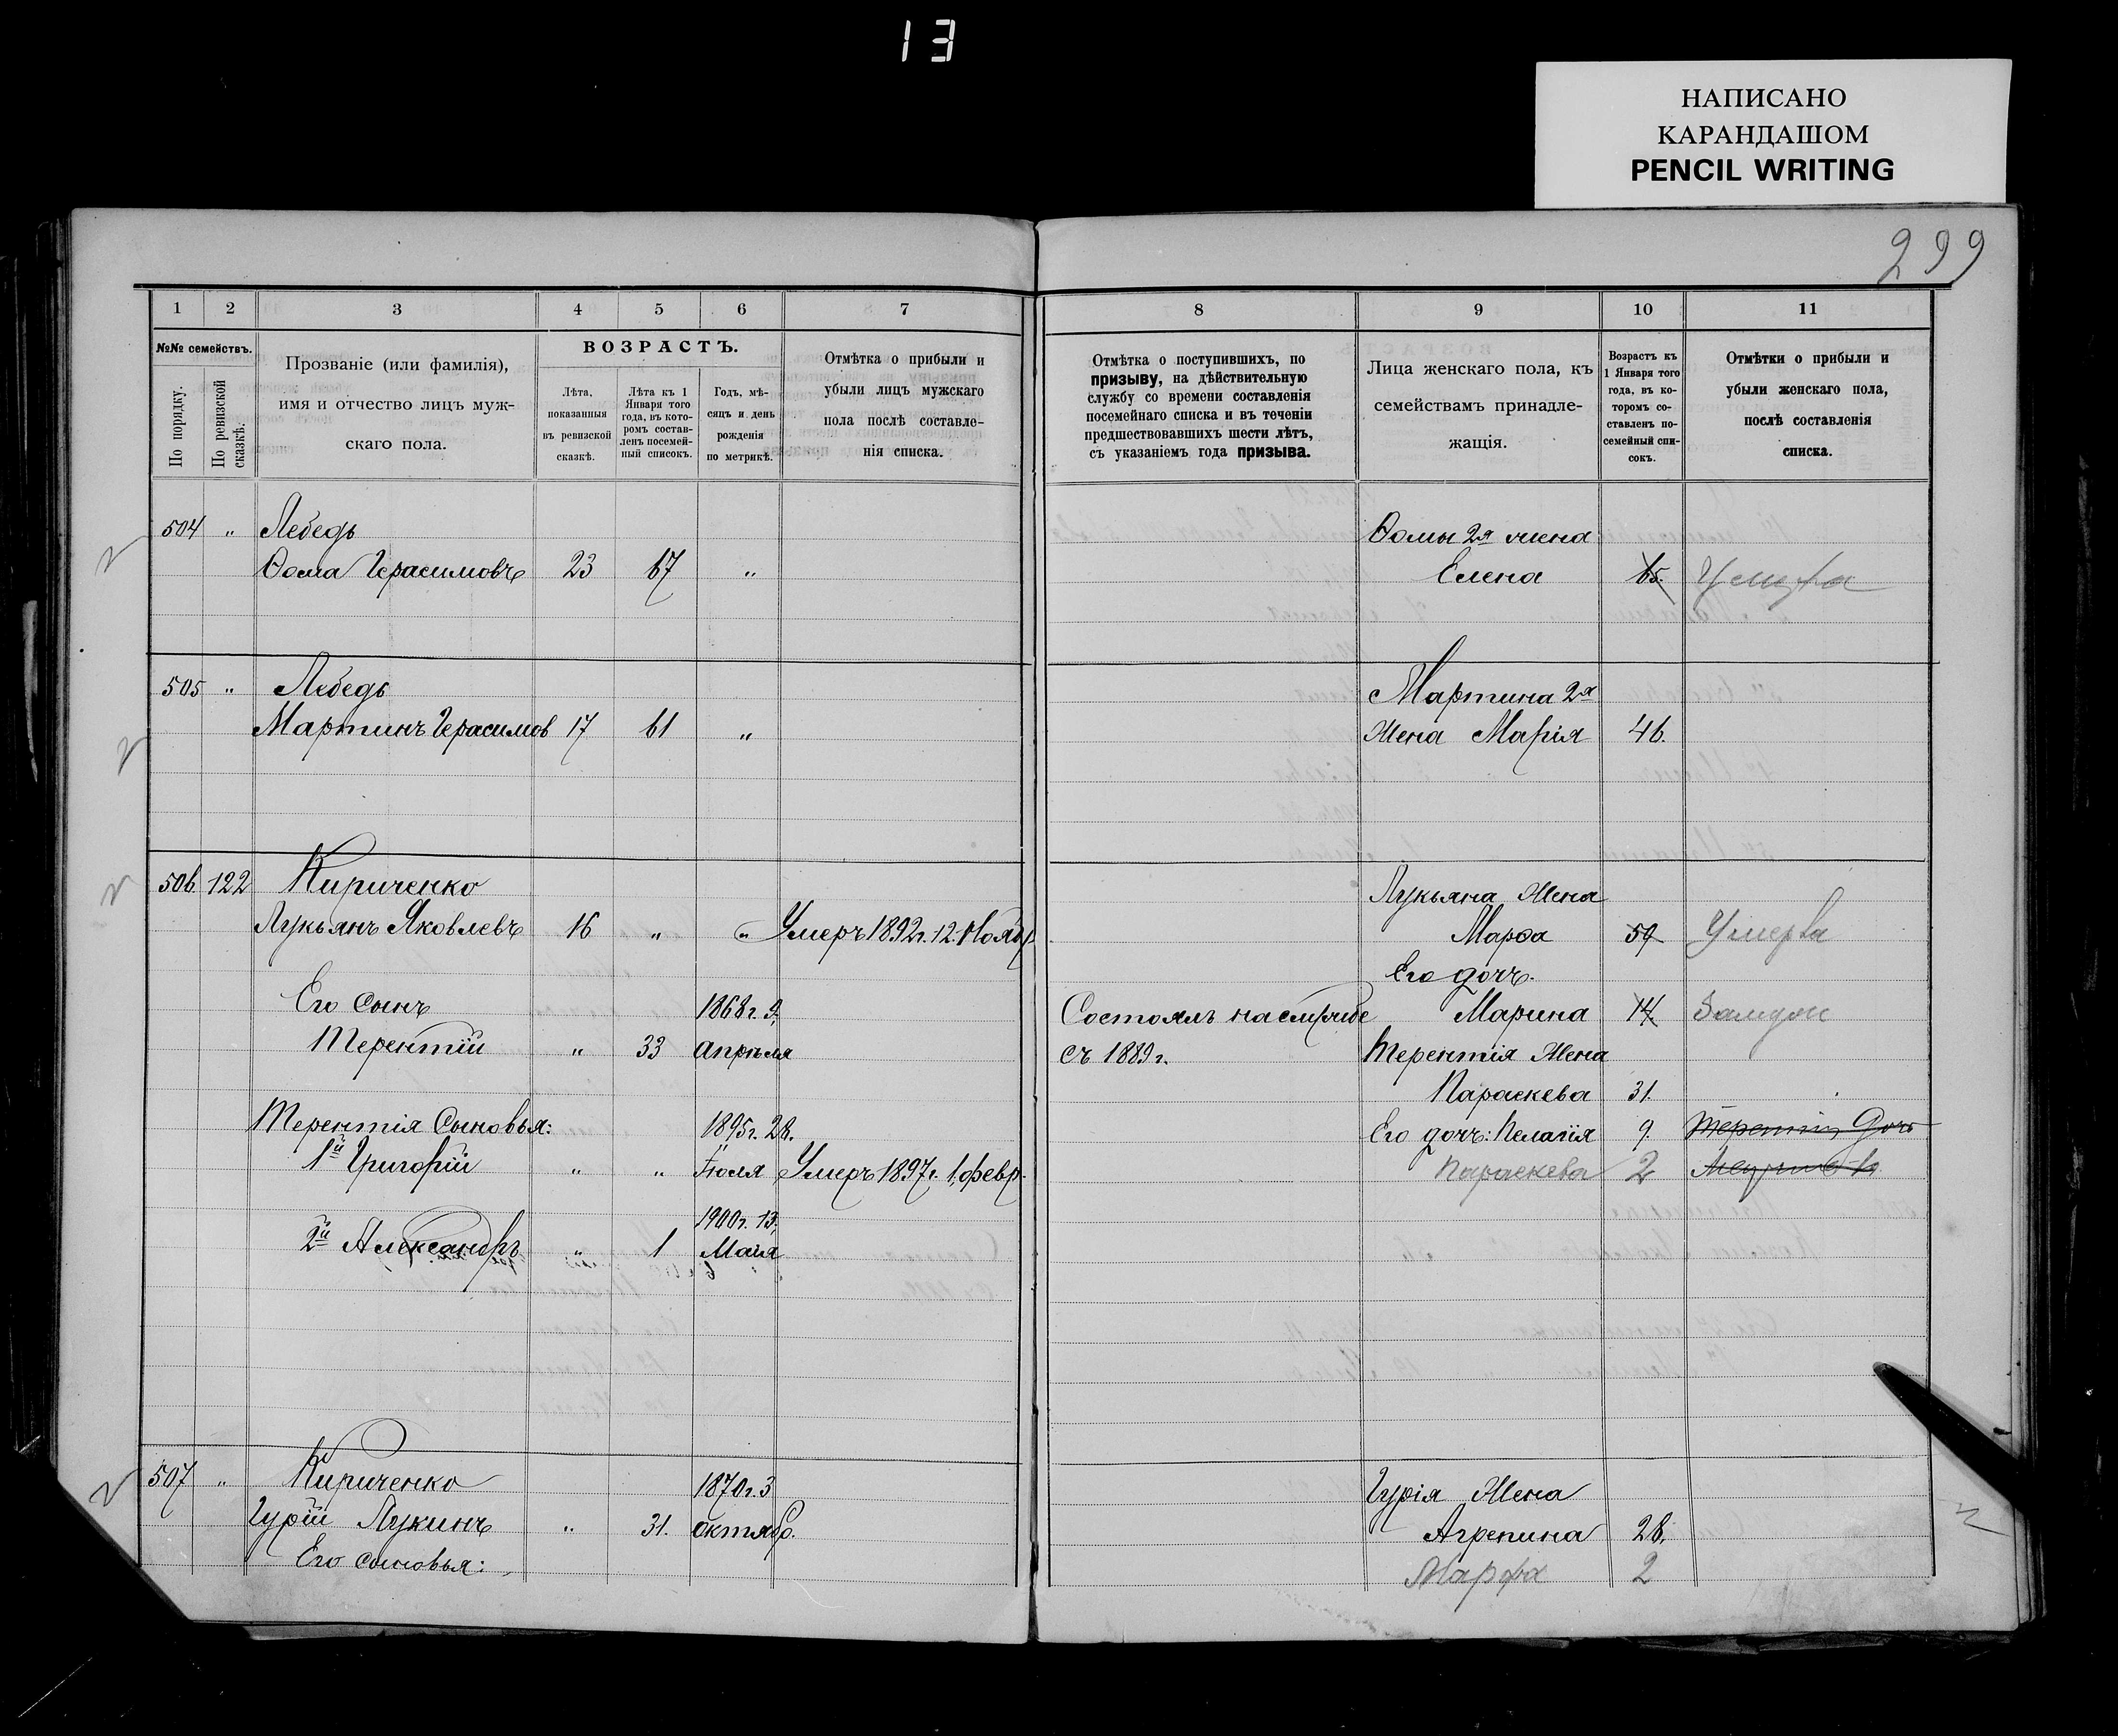 13
НАПИСАНО
КАРАНДАШОМ
PENCIL WRITING
299
1 2 3 4 5 6 7 8 9 10 11
№№ семействъ.
По порядку.
По ревизской сказкѣ.
Прозваніе (или фамилія),
имя и отчество лицъ муж-
скаго пола.
ВОЗРАСТЪ.
Лѣта,
показанныя
въ ревизской
сказкѣ.
Лѣта къ 1
Января того
года, въ кото-
ромъ состав-
ленъ посемей-
ный списокъ.
Годъ, мѣ-
сяцъ и день
рожденія
по метрикѣ.
Отмѣтка о прибыли и
убыли лицъ мужскаго
пола послѣ составле-
нія списка.
Отмѣтка о поступившихъ, по
призыву, на дѣйствительную
службу со времени составленія
посемейнаго списка и въ теченіи
предшествовавшихъ шести лѣтъ,
съ указаніемъ года призыва.
Лица женскаго пола, къ
семействамъ принадле-
жащія.
Возрастъ къ
1 Января того
года, въ ко-
торомъ со-
ставленъ по-
семейный спи-
сокъ.
Отмѣтки о прибыли и
убыли женскаго пола,
послѣ составленія
списка.
504 " Лебедь Ѳомы 2я жена
Ѳома Герасимовъ 23 67 " Елена 65. Умерла
505 " Лебедь Мартина 2я
Мартинъ Герасимов 17 61 " Жена Марія 46.
506 122 Кириченко Лукьяна Жена
Лукьянъ Яковлевъ 16 " " Умеръ 1892г. 12. Ноябр. Марѳа 59 Умерла
Его дочь.
Его Сынъ 1868г. 9. Состоялъ на службе Марина 14. Замуж
Терентій " 33 апрѣля съ 1889г. Терентія Жена
Параскева 31.
Терентія Сыновья: 1895г. 28. Его дочь: Пелагія 9. Дочь
1й Григорій " " Іюля Умеръ 1897г. 1, февр. Параскева 2
1900г. 13.
2й Александръ " 1 Мая
507 " Кириченко 1870г. 3 Гурія Жена
Гурій Лукинъ " 31. октябр. Агрепина 28.
Его сыновья: Марфа 2